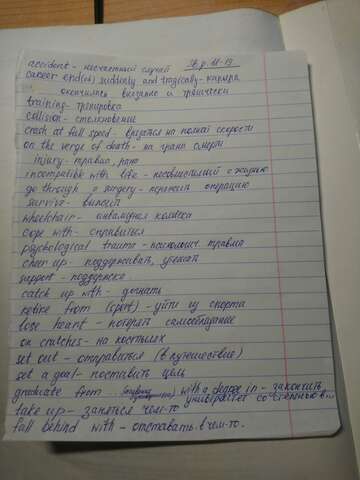 accident - несчастный случай Sb p. 11-13
career end(ed) suddenly and tragically - карьера
окончилась внезапно и трагически
training - тренировка
collision - столкновение
crash at full speed - врезаться на полной скорости
on the verge of death - на грани смерти
injury - травма, рана
incompatible with life - несовместимый с жизнью
go through a surgery - перенести операцию
survive - выжить
wheelchair - инвалидная коляска
cope with - справиться
psychological trauma - психолог. травма
cheer up - поддерживать, утешать
support - поддержка
catch up with - догнать
retire from (sport) - уйти из спорта
lose heart - потерять самообладание
on crutches - на костылях
set out - отправиться (в путешествие)
set a goal - поставить цель
graduate from ... with a degree in - закончить
университет со степенью в...
take up - заняться чем-то
fall behind with - отставать в чем-то.